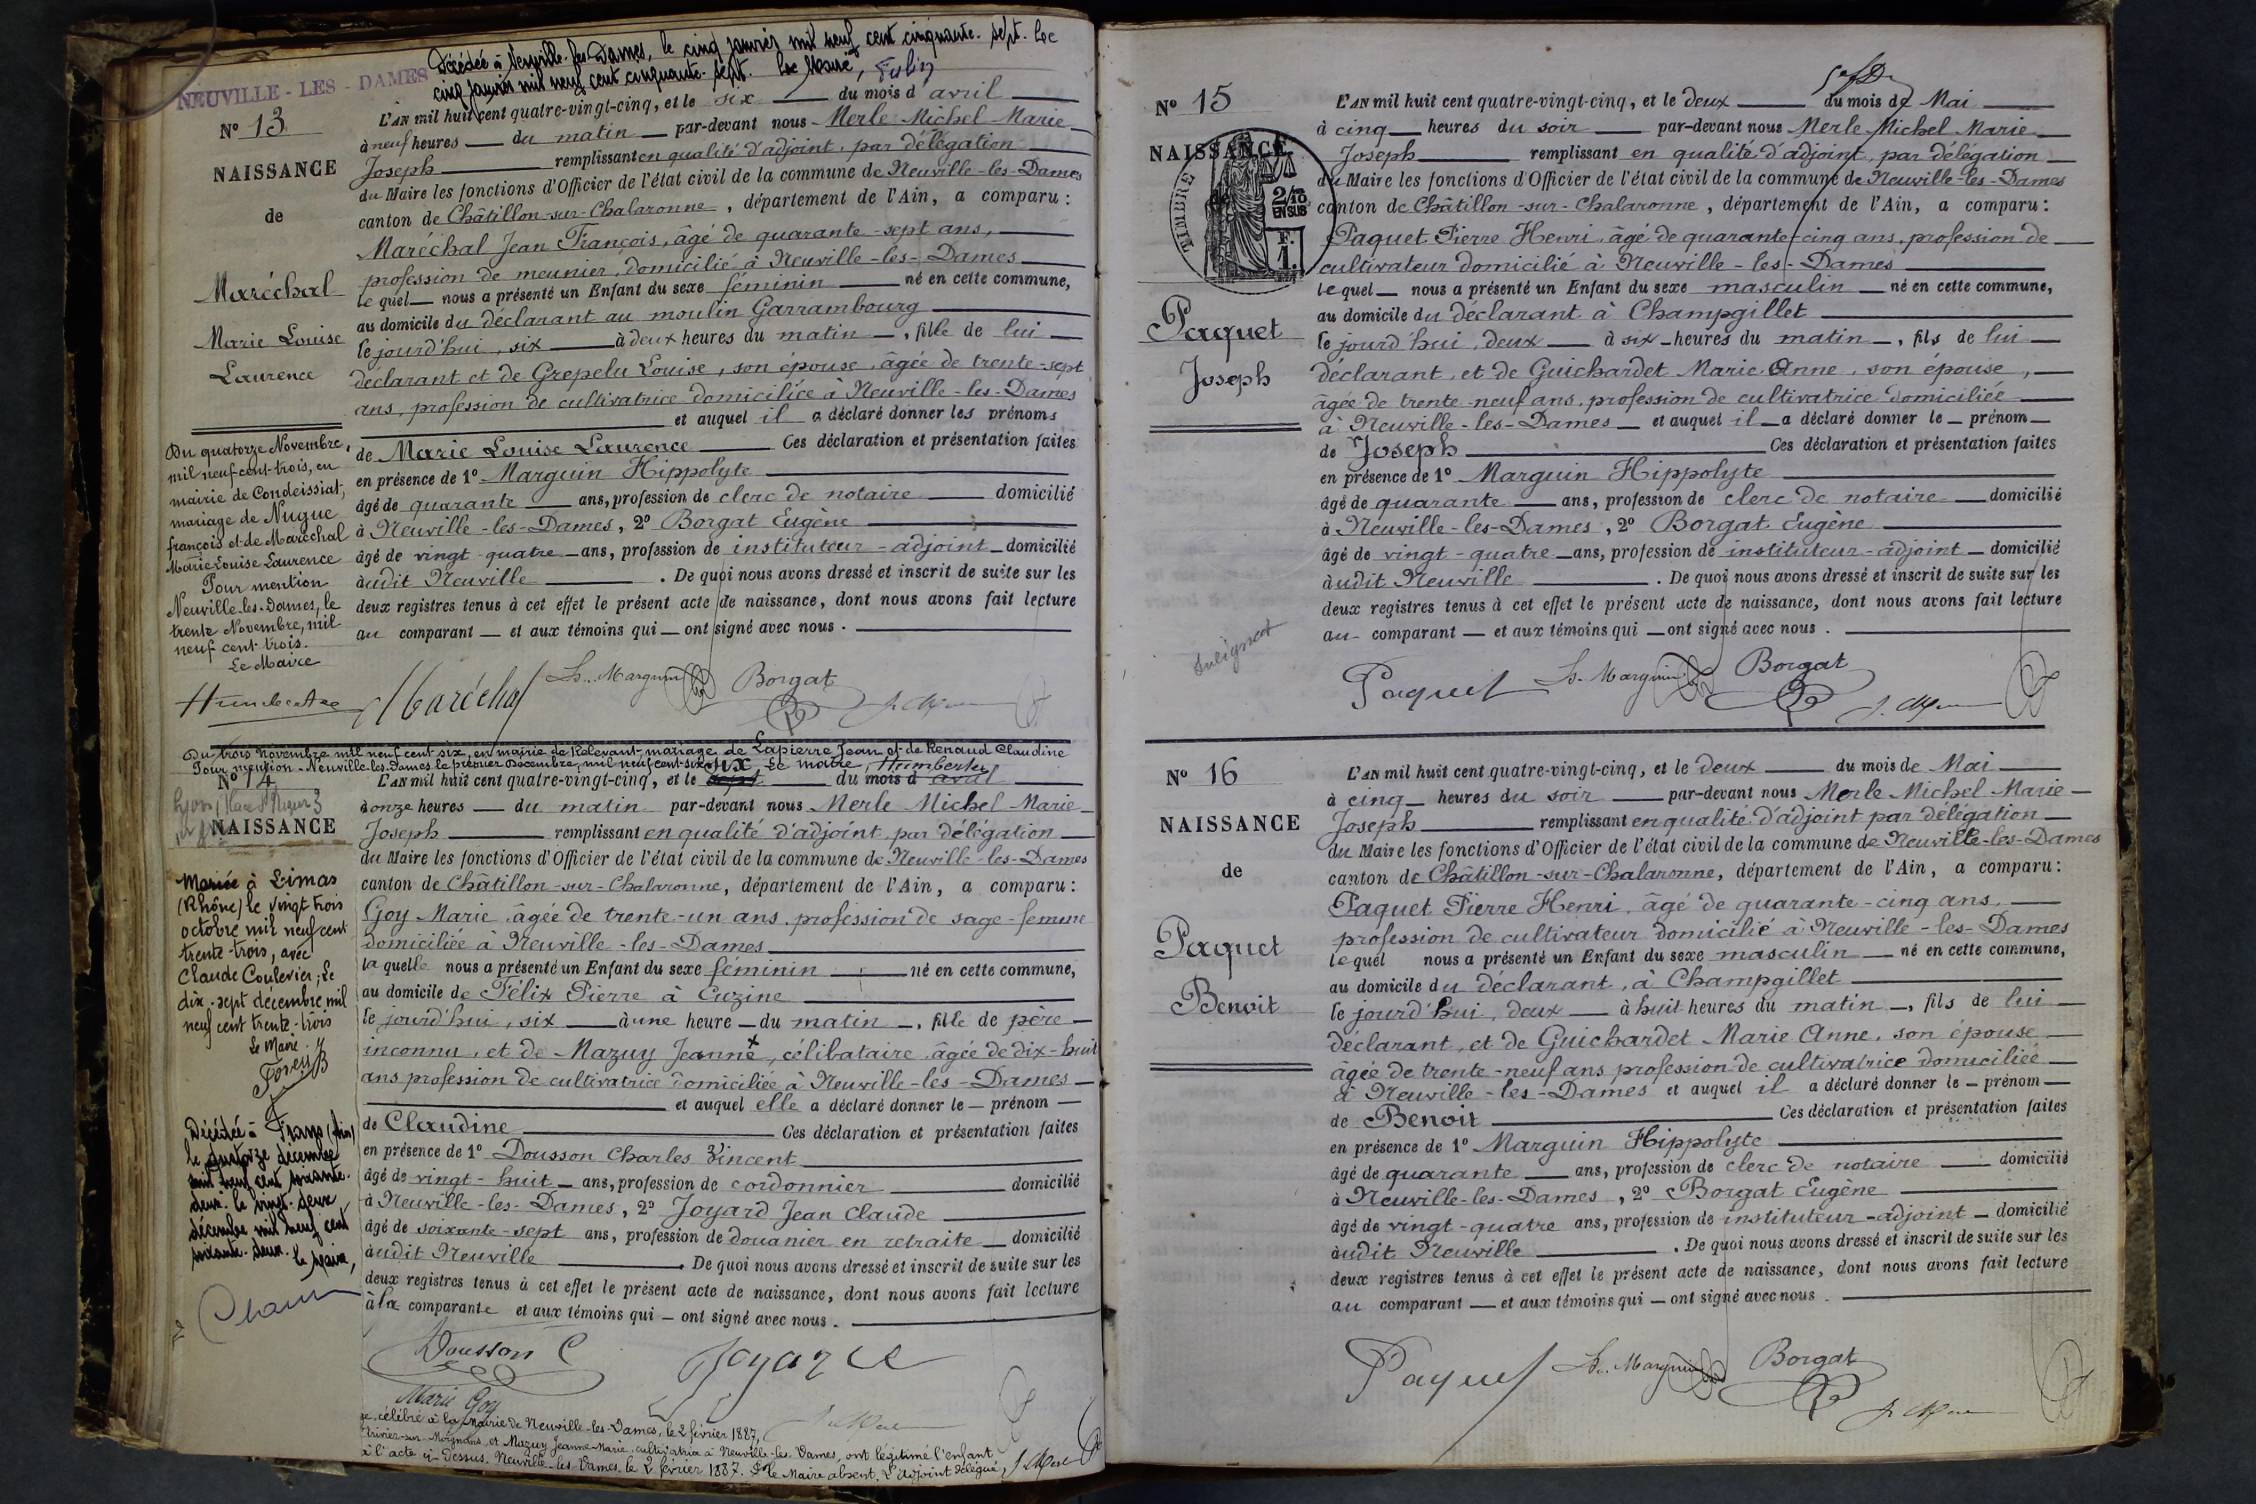 Décédée à Neuville-les-Dames, le cinq janvier mil neuf cent cinquante-sept. Le
cinq janvier mil neuf cent cinquante-sept. Le Maire,
NEUVILLE - LES - DAMES
N° 13
NAISSANCE
de
Maréchal
Marie Louise
Laurence
L'AN mil huit cent quatre-vingt-cinq, et le six du mois d'avril
à neuf heures du matin par-devant nous Merle Michel Marie
Joseph remplissant en qualité d'adjoint, par délégation
du Maire les fonctions d'Officier de l'état civil de la commune de Neuville-les-Dames
canton de Châtillon-sur-Chalaronne, département de l'Ain, a comparu :
Maréchal Jean François, âgé de quarante-sept ans,
profession de meunier, domicilié à Neuville-les-Dames
lequel nous a présenté un Enfant du sexe féminin né en cette commune,
au domicile du déclarant au moulin Garrambourg
le jourd'hui, six à deux heures du matin, fille de lui
déclarant et de Grepelu Louise, son épouse, âgée de trente-sept
ans, profession de cultivatrice domiciliée à Neuville-les-Dames
et auquel il a déclaré donner les prénoms
de Marie Louise Laurence Ces déclaration et présentation faites
en présence de 1° Marguin Hippolyte
âgé de quarante ans, profession de clerc de notaire domicilié
à Neuville-les-Dames, 2° Borgat Eugène
âgé de vingt-quatre ans, profession de instituteur-adjoint domicilié
audit Neuville. De quoi nous avons dressé et inscrit de suite sur les
deux registres tenus à cet effet le présent acte de naissance, dont nous avons fait lecture
au comparant et aux témoins qui ont signé avec nous.
Du quatorze Novembre,
mil neuf-cent-trois, en
mairie de Condeissiat,
mariage de Nugue
françois et de Maréchal
Marie Louise Laurence
Pour mention
Neuville-les-Dames, le
trente Novembre, mil
neuf cent-trois.
Le Maire
Maréchal H. Marguin Borgat
Du trois Novembre mil neuf cent six, en mairie de Relevant, mariage de Lapierre Jean et de Renaud Claudine
Pour mention - Neuville-les-Dames le premier Décembre, mil neuf cent-six. Le maire, Humbert
N° 14
NAISSANCE
L'AN mil huit cent quatre-vingt-cinq, et le six du mois d'avril
à onze heures du matin par-devant nous Merle Michel Marie
Joseph remplissant en qualité d'adjoint, par délégation
du Maire les fonctions d'Officier de l'état civil de la commune de Neuville-les-Dames
canton de Châtillon-sur-Chalaronne, département de l'Ain, a comparu :
Goy Marie, âgée de trente-un ans, profession de sage-femme
domiciliée à Neuville-les-Dames
laquelle nous a présenté un Enfant du sexe féminin né en cette commune,
au domicile de Félix Pierre à Cuzine
le jourd'hui, six à une heure du matin, fille de père
inconnu, et de Mazuy Jeanne, célibataire, âgée de dix-huit
ans profession de cultivatrice domiciliée à Neuville-les-Dames
et auquel elle a déclaré donner le prénom
de Claudine Ces déclaration et présentation faites
en présence de 1° Dousson Charles Vincent
âgé de vingt-huit ans, profession de cordonnier domicilié
à Neuville-les-Dames, 2° Joyard Jean Claude
âgé de soixante-sept ans, profession de douanier en retraite domicilié
audit Neuville. De quoi nous avons dressé et inscrit de suite sur les
deux registres tenus à cet effet le présent acte de naissance, dont nous avons fait lecture
à la comparante et aux témoins qui ont signé avec nous.
Mariée à Limas
(Rhône) le vingt trois
octobre mil neuf cent
trente-trois, avec
Claude Coulevier; Le
dix-sept décembre mil
neuf cent trente-trois
Le Maire
Décédée à Frans (Ain)
le quatorze décembre
mil neuf cent soixante-
deux. le vingt-deux
décembre mil neuf cent
soixante-deux. le Maire,
Dousson C Joyard
Marie Goy
célébré à la Mairie de Neuville-les-Dames, le 2 février 1887,
et Mazuy Jeanne-Marie, cultivatrice à Neuville-les-Dames, ont légitimé l'enfant
à l'acte ci-dessus. Neuville-les-Dames, le 2 février 1887. le Maire absent, L'adjoint délégué,
N° 15
NAISSANCE
TIMBRE
EN SUS
F.
1.
Paquet
Joseph
L'AN mil huit cent quatre-vingt-cinq, et le deux du mois de Mai
à cinq heures du soir par-devant nous Merle Michel Marie
Joseph remplissant en qualité d'adjoint, par délégation
du Maire les fonctions d'Officier de l'état civil de la commune de Neuville-les-Dames
canton de Châtillon-sur-Chalaronne, département de l'Ain, a comparu :
Paquet Pierre Henri, âgé de quarante-cinq ans, profession de
cultivateur domicilié à Neuville-les-Dames
lequel nous a présenté un Enfant du sexe masculin né en cette commune,
au domicile du déclarant à Champgillet
le jourd'hui, deux à six heures du matin, fils de lui
déclarant, et de Guichardet Marie Anne, son épouse,
âgée de trente-neuf ans, profession de cultivatrice domiciliée
à Neuville-les-Dames et auquel il a déclaré donner le prénom
de Joseph Ces déclaration et présentation faites
en présence de 1° Marguin Hippolyte
âgé de quarante ans, profession de clerc de notaire domicilié
à Neuville-les-Dames, 2° Borgat Eugène
âgé de vingt-quatre ans, profession de instituteur-adjoint domicilié
audit Neuville. De quoi nous avons dressé et inscrit de suite sur les
deux registres tenus à cet effet le présent acte de naissance, dont nous avons fait lecture
au comparant et aux témoins qui ont signé avec nous.
Paquet H. Marguin Borgat
N° 16
NAISSANCE
de
Paquet
Benoit
L'AN mil huit cent quatre-vingt-cinq, et le deux du mois de Mai
à cinq heures du soir par-devant nous Merle Michel Marie
Joseph remplissant en qualité d'adjoint par délégation
du Maire les fonctions d'Officier de l'état civil de la commune de Neuville-les-Dames
canton de Châtillon-sur-Chalaronne, département de l'Ain, a comparu :
Paquet Pierre Henri, âgé de quarante-cinq ans,
profession de cultivateur domicilié à Neuville-les-Dames
lequel nous a présenté un Enfant du sexe masculin né en cette commune,
au domicile du déclarant, à Champgillet
le jourd'hui, deux à huit heures du matin, fils de lui
déclarant, et de Guichardet Marie Anne, son épouse
âgée de trente-neuf ans profession de cultivatrice domiciliée
à Neuville-les-Dames et auquel il a déclaré donner le prénom
de Benoit Ces déclaration et présentation faites
en présence de 1° Marguin Hippolyte
âgé de quarante ans, profession de clerc de notaire domicilié
à Neuville-les-Dames, 2° Borgat Eugène
âgé de vingt-quatre ans, profession de instituteur-adjoint domicilié
audit Neuville. De quoi nous avons dressé et inscrit de suite sur les
deux registres tenus à cet effet le présent acte de naissance, dont nous avons fait lecture
au comparant et aux témoins qui ont signé avec nous.
Paquet H. Marguin Borgat